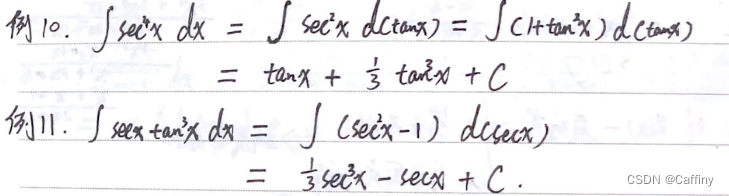 例10. ∫sec⁴x dx = ∫ sec²x d(tanx) = ∫(1+tan²x) d(tanx)
= tanx + 1/3 tan³x + C
例11. ∫ secx tan³x dx = ∫ (sec²x-1) d(secx)
= 1/3 sec³x - secx + C.
CSDN @Caffiny